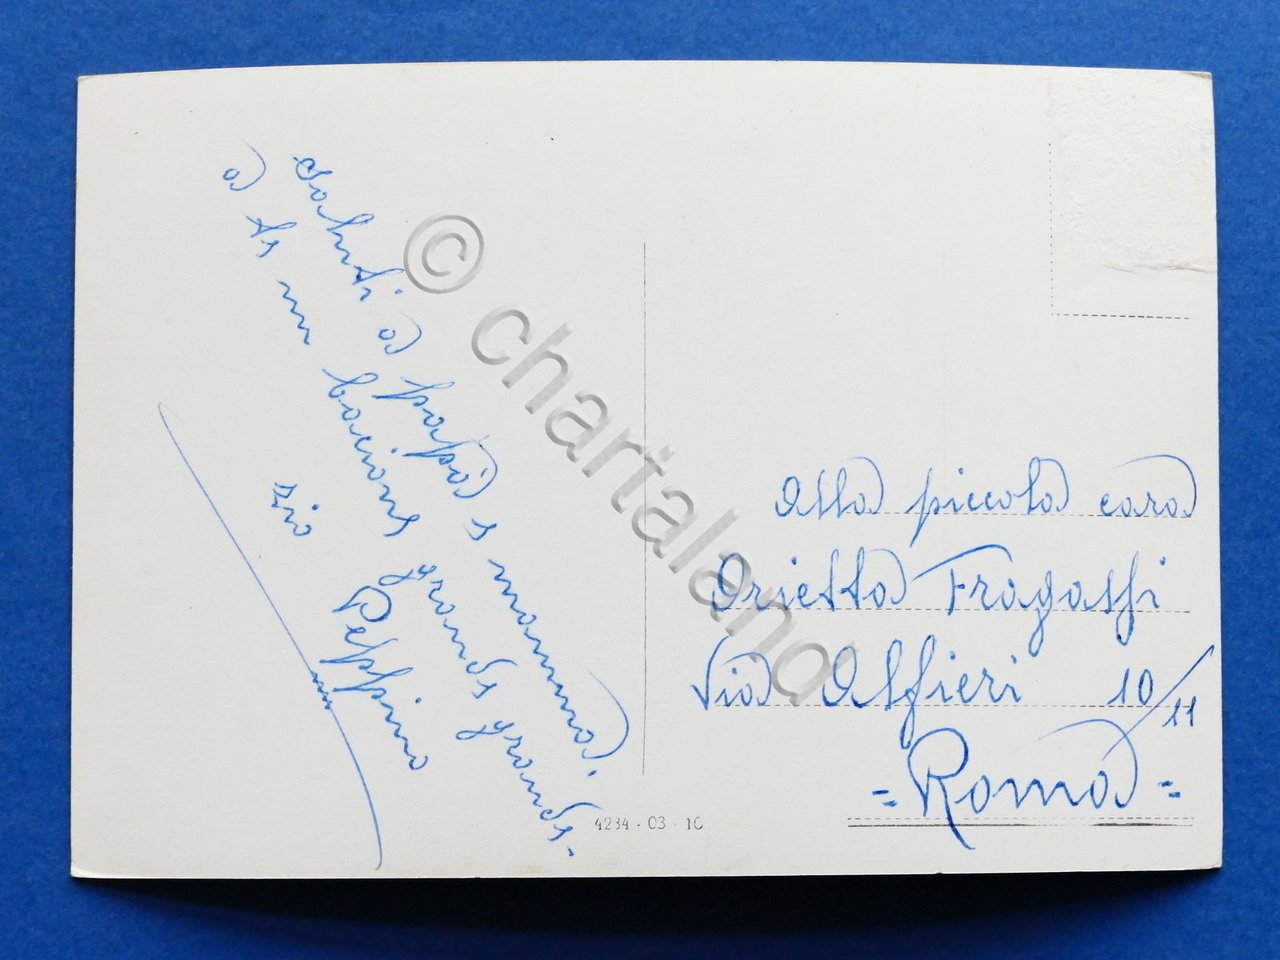 Saluti a papà e mamma.
a te un bacione grande grande.
zio
Peppino
Alla piccola cara
Orietta Fragassi
Via Alfieri 10/11
= Roma =
4234 - 03 - 10
© chartaland